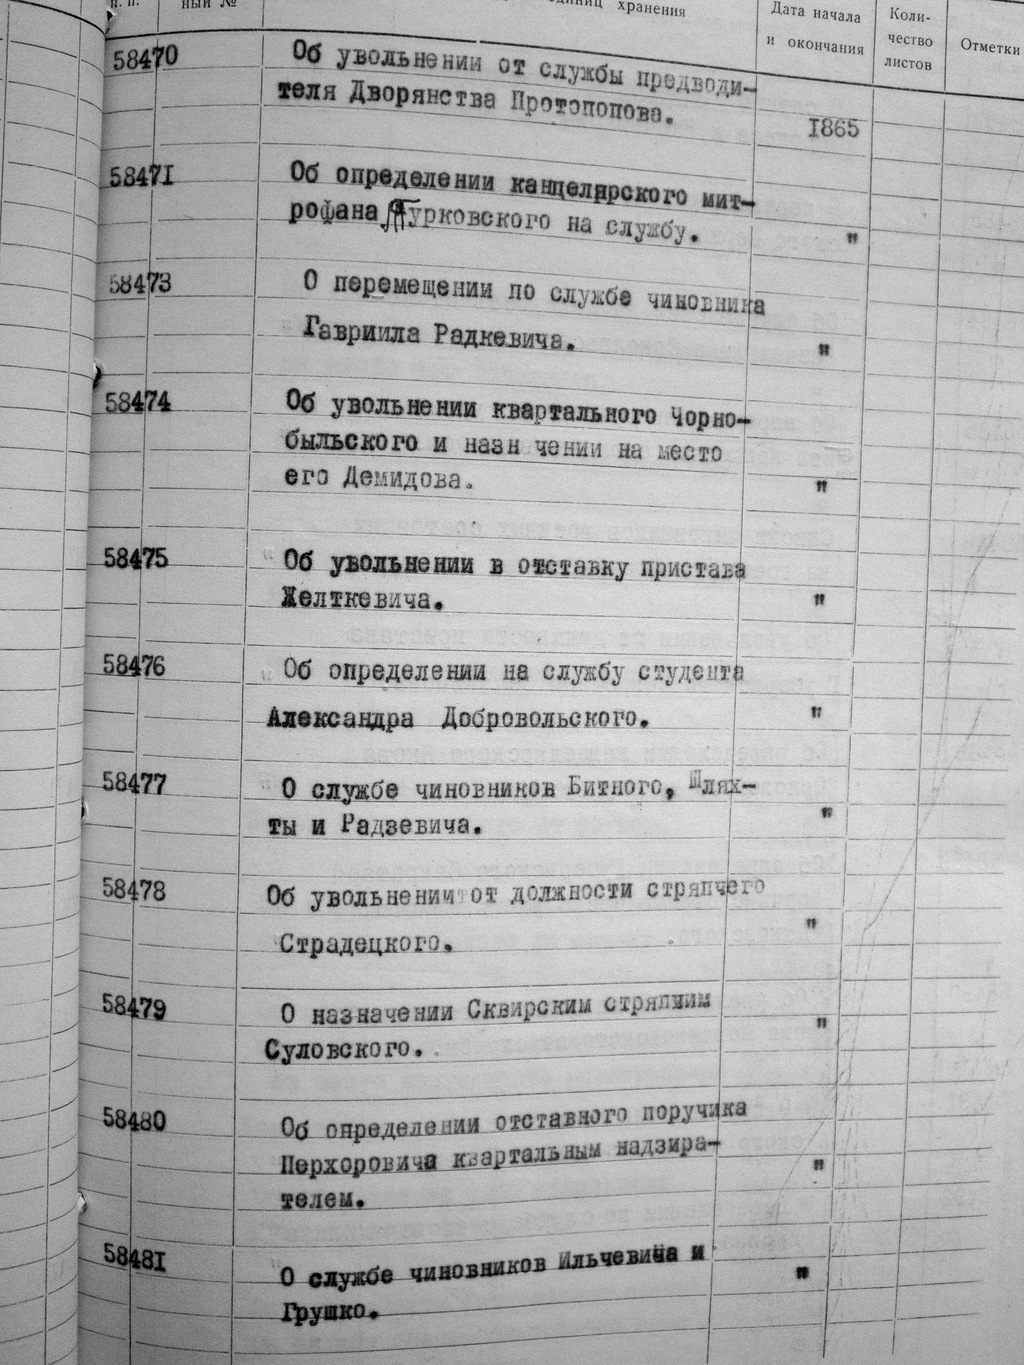 п. п.
ный №
единиц хранения
Дата начала
и окончания
Коли-
чество
листов
Отметки
58470 Об увольнении от службы предводи-
теля Дворянства Протопопова. 1865
58471 Об определении канцелярского мит-
рофана Турковского на службу. "
58473 О перемещении по службе чиновника
Гавриила Радкевича. "
58474 Об увольнении квартального Чорно-
быльского и назн чении на место
его Демидова. "
58475 Об увольнении в отставку пристава
Желткевича. "
58476 Об определении на службу студента
Александра Добровольского. "
58477 О службе чиновников Битного, Шлях-
ты и Радзевича. "
58478 Об увольнении от должности стряпчего
Страдецкого. "
58479 О назначении Сквирским стряпчим
Суловского. "
58480 Об определении отставного поручика
Перхоровича квартальным надзира-
телем. "
58481 О службе чиновников Ильчевича и
Грушко. "